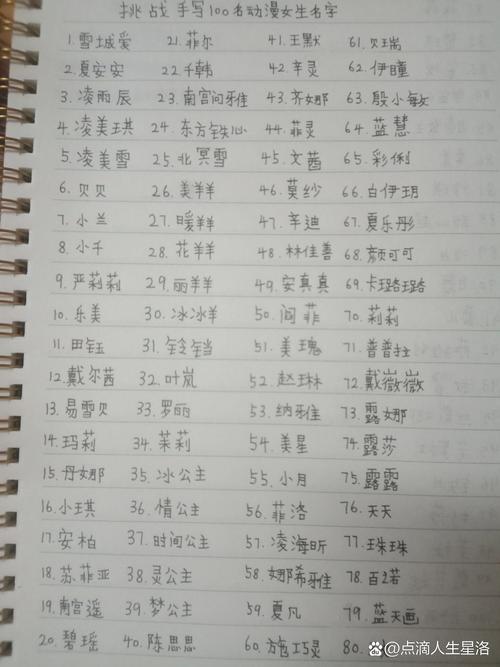 挑战手写100名动漫女生名字
1.雪城爱 21.菲尔 41.王默 61.贝瑞
2.夏安安 22.千韩 42.辛灵 62.伊瞳
3.凌雨辰 23.南宫问雅 43.齐娜 63.殷小敏
4.凌美琪 24.东方铁心 44.菲灵 64.蓝慧
5.凌美雪 25.北冥雪 45.文茜 65.彩俐
6.贝贝 26.美羊羊 46.莫纱 66.白伊玥
7.小兰 27.暖羊羊 47.辛迪 67.夏乐彤
8.小千 28.花羊羊 48.林佳善 68.颜可可
9.严莉莉 29.丽羊羊 49.安真真 69.卡璐璐
10.乐美 30.冰冰羊 50.闾菲 70.莉莉
11.田钰 31.铃铛 51.美瑰 71.普普拉
12.戴尔茜 32.叶岚 52.赵琳 72.戴薇薇
13.易雪贝 33.罗丽 53.纳雅 73.露娜
14.玛莉 34.茉莉 54.美星 74.露莎
15.丹娜 35.冰公主 55.小月 75.露露
16.小琪 36.情公主 56.菲洛 76.天天
17.安柏 37.时间公主 57.凌海昕 77.珠珠
18.苏菲亚 38.灵公主 58.娜希雅 78.百若
19.南宫遥 39.梦公主 59.夏凡 79.蓝天画
20.碧瑶 40.陈思思 60.施巧灵 80.
点滴人生星洛